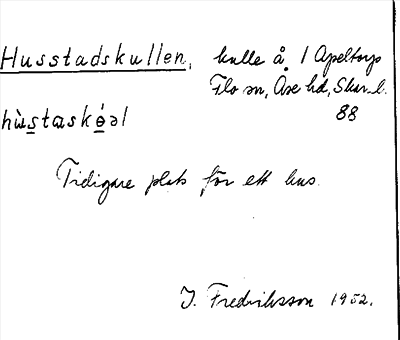 Husstadskullen, kulle å 1 Apeltorp
Flo sn, Åse hd, Skar. l.
88
hùstaskéəl
Tidigare plats för ett hus.
I. Fredriksson 1952.